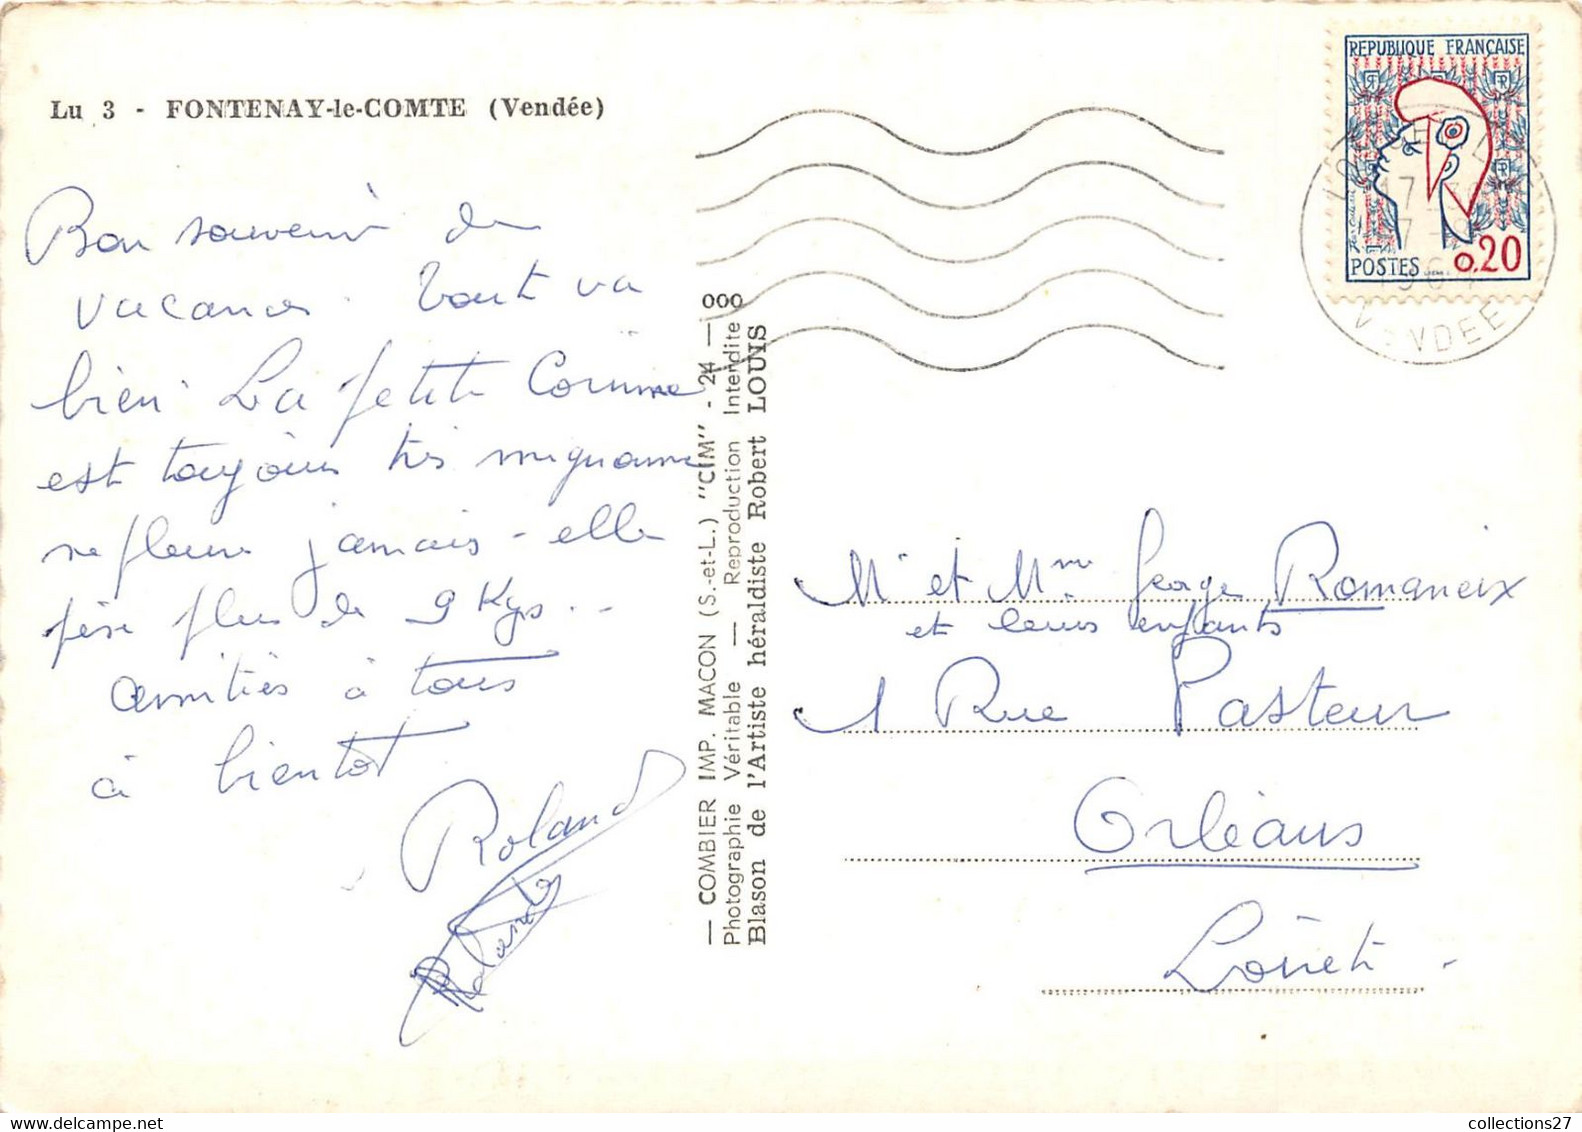 Lu 3 - FONTENAY-le-COMTE (Vendée)
Bon souvenir de
vacances. Tout va
bien. La petite Corinne
est toujours très mignonne
ne pleure jamais - elle
pèse plus de 9 Kgs..
amitiés à tous
à bientôt
Roland
— COMBIER IMP. MACON (S.-et-L.) "CIM" - 24 — 000
Photographie Véritable — Reproduction Interdite
Blason de l'Artiste héraldiste Robert LOUIS
REPUBLIQUE FRANÇAISE
POSTES 0,20
17 30
VENDEE
Mr et Mme George Romaneix
et leurs enfants
1 Rue Pasteur
Orléans
Loiret.
collections27